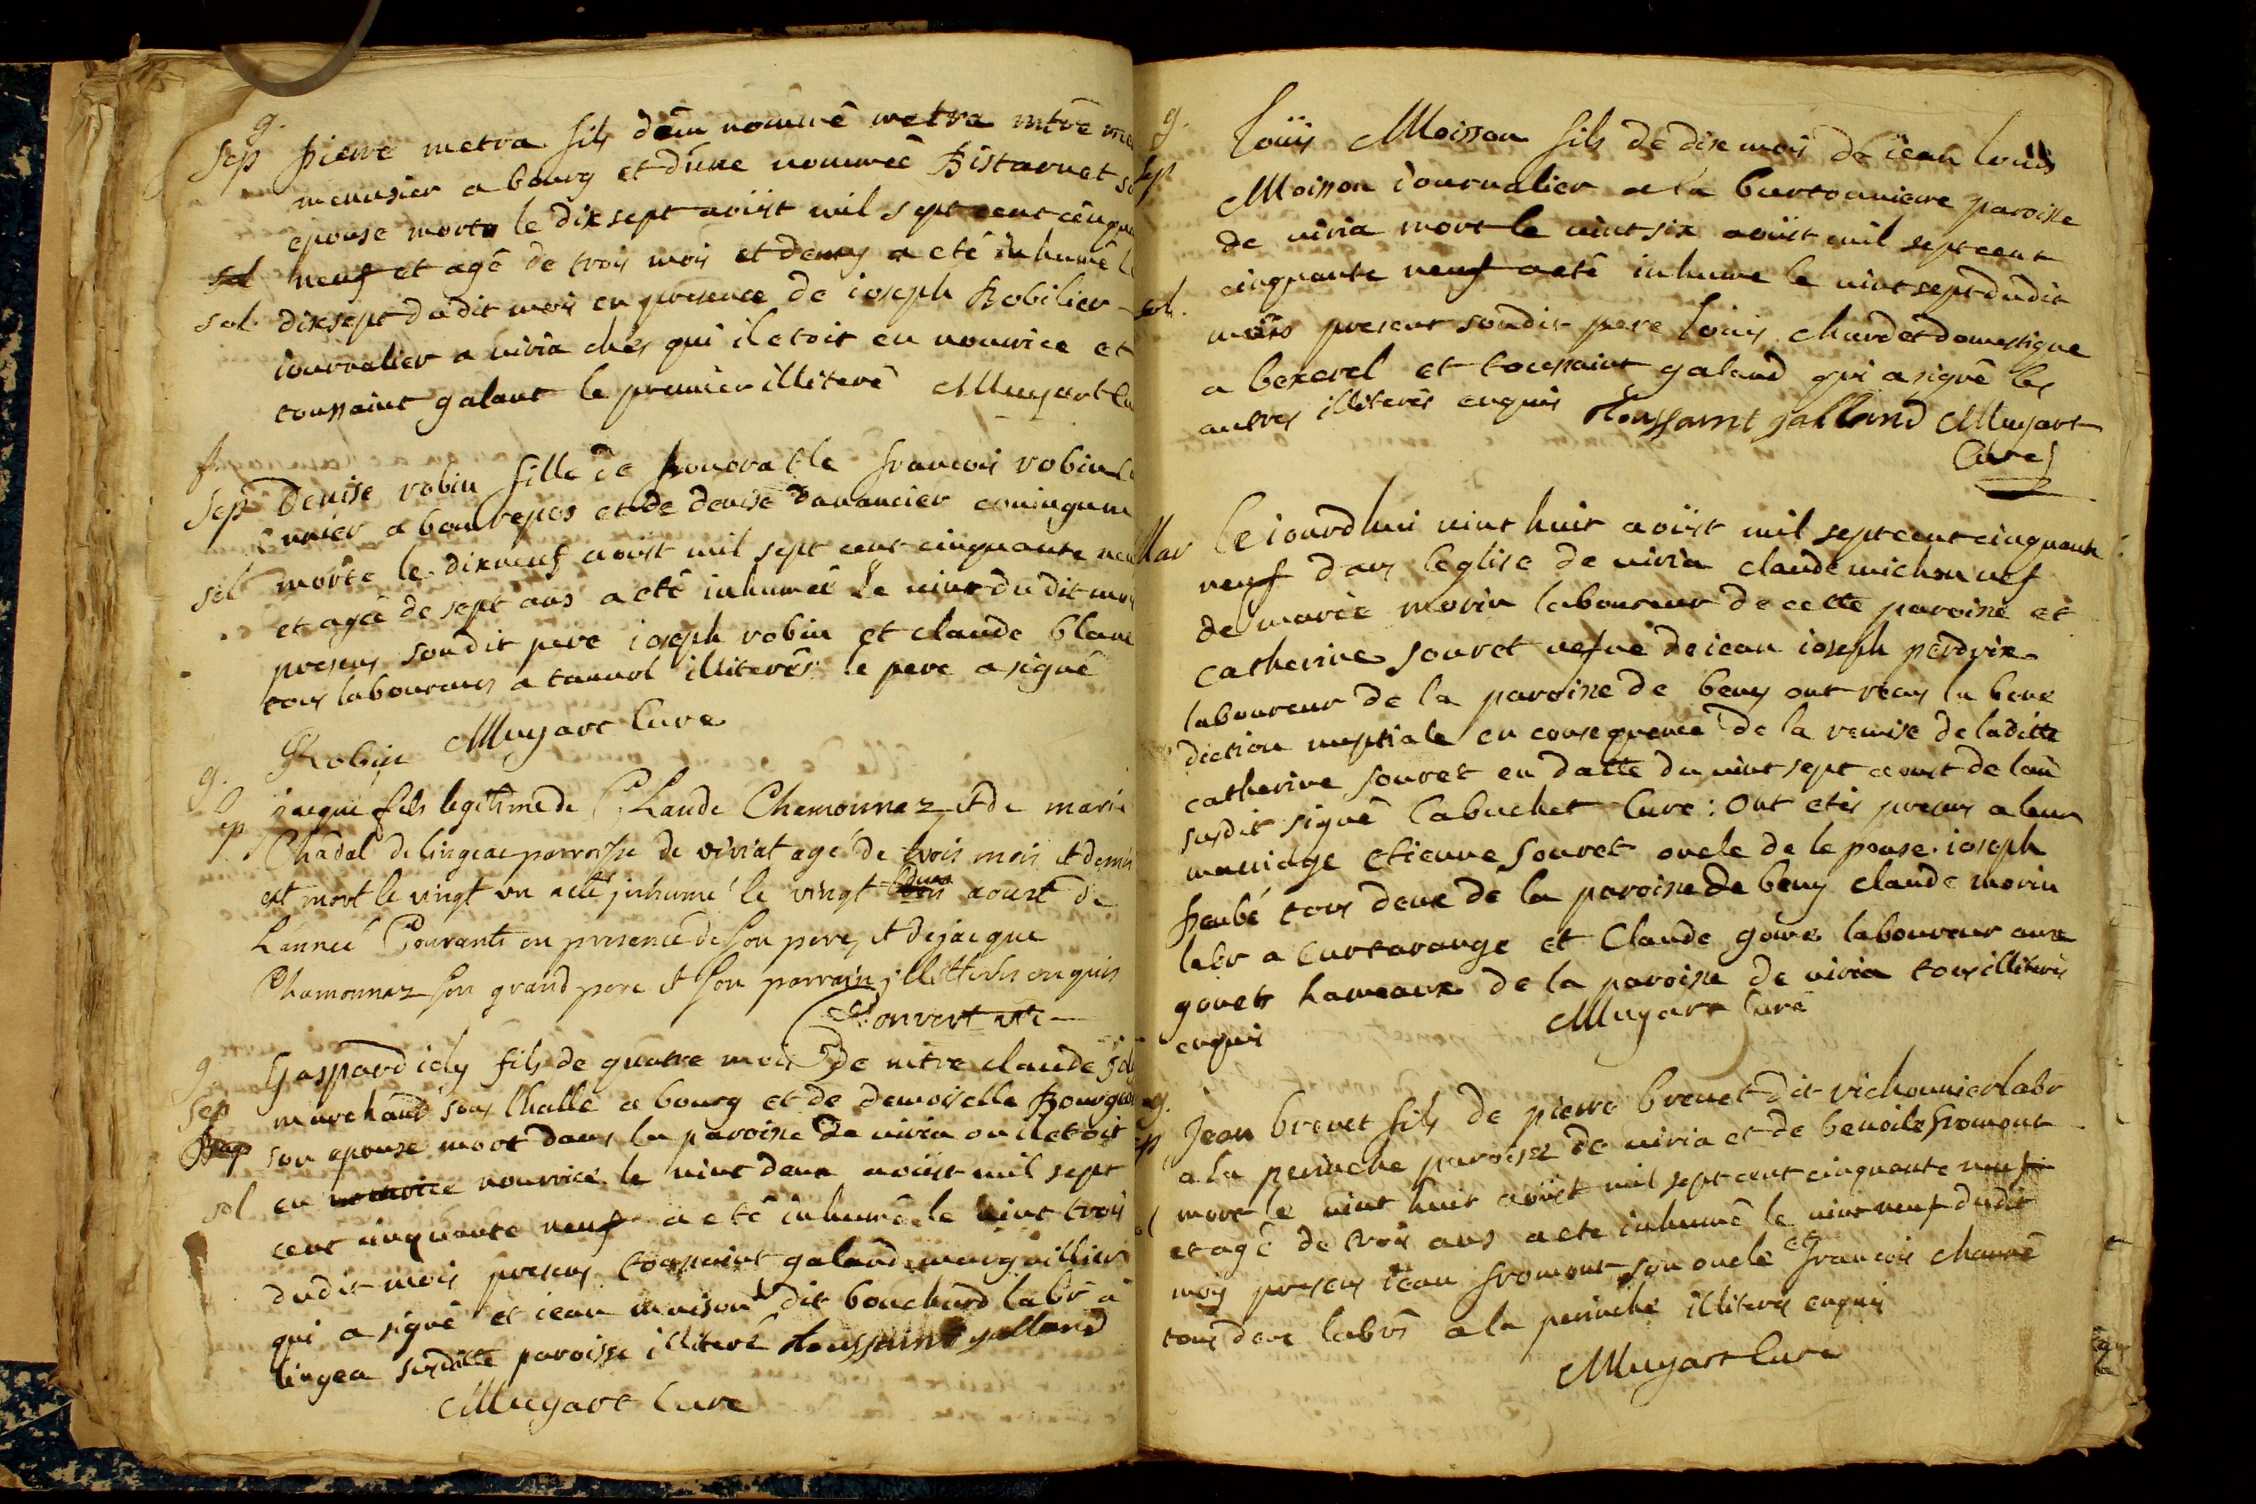 g.
sep pierre metra fils d'ein nommé metra mtre me
menusier a bourg et d'une nommeé Bistarnet so
epouse mort le dixsept aoüst mil sept cent cinqua
sol neuf et agé de trois mois et demy a eté inhumé le
sol dixsept dudit mois en presence de ioseph Robilier
iournalier a viria ches qui il etoit en nourice et
toussaint galant le premier illiteré Muyart Cu
f.
sep Denise robin fille de honorable francois robin
a beaurepos et de denise davancier
sol morte le dixneuf aoüst mil sept cent cinquante neu
et ageé de sept ans a eté inhumeé le vint du dit moi
presens son dit pere ioseph robin et claude blanc
tous laboureurs a illiterés le pere a signé
Robin Muyart Cure
g.
sep jacque fils legitime de Claude Chamonnaz et de marie
Chadal de lingeat parroisse de viriat agé de trois mois et demis
est mort le vingt un a eté inhumé le vingt trois deux aoust de
L'anneé Courante en presence de son pere, et de jacque
Chamonnaz son grand pere et son parrain, illitterés enquis
Convert vic
g.
Gaspard ioly fils de quatre mois de mtre claude joly
sep marchand sous l'hallé a bourg et de demoiselle Bourgeois
Bap son epouse mort dans la paroisse de viria ou il etoit
sol en nourrice nourrice le vint deux aoüst mil sept
cent cinquante neuf a eté inhumé le vint trois
dudit mois presens toussaint galand marguillier
qui a signé et iean maison dit bouchard labr a
lingea susditte paroisse illiteré toussaint galland
Muyart Cure
g.
sep Loüis Moisson fils de dix mois de iean louis
Moisson iournalier a la bertonniere paroisse
de viria mort le vint six aoüst mil sept cent
sol. cinquante neuf a eté inhumé le vint sept dudit
mois present son dit pere louis chardet domestique
a bexerel et toussaint galand qui a signé les
autres illiterés enquis toussaint galland Muyart
Cure
Mar Ce iourd'hui vint huit aoüst mil sept cent cinquante
neuf dans l'eglise de viria claude michon vef
de marie morin laboureur de cette paroisse et
catherine souret vefve de iean ioseph perdrix
laboureur de la paroisse de beny ont reçus la bene
diction nuptiale en consequence de la remise de laditte
catherine souret en datte du vint sept aoust de l'an
susdit signé Cabuchet Cure : Ont etés presens a leur
mariage etienne souret oncle de l'epouse ioseph
tous deux de la paroisse de beny claude morin
labr a curtarange et Claude goires laboureur aux
gouets hameaux de la paroisse de viria tous illiterés
enquis Muyart Curé
g.
sep Jean brevet fils de pierre brevet dit vichonnier labr
a la perinche paroisse de viria et de benoite fromont
mort le vint huit aoüst mil sept cent cinquante neuf
sol et agé de trois ans a eté inhumé le vint neuf dudit
mois presens iean fromont son oncle et francois channé
tous deux labrs a la perinche illiterés enquis
Muyart Cure